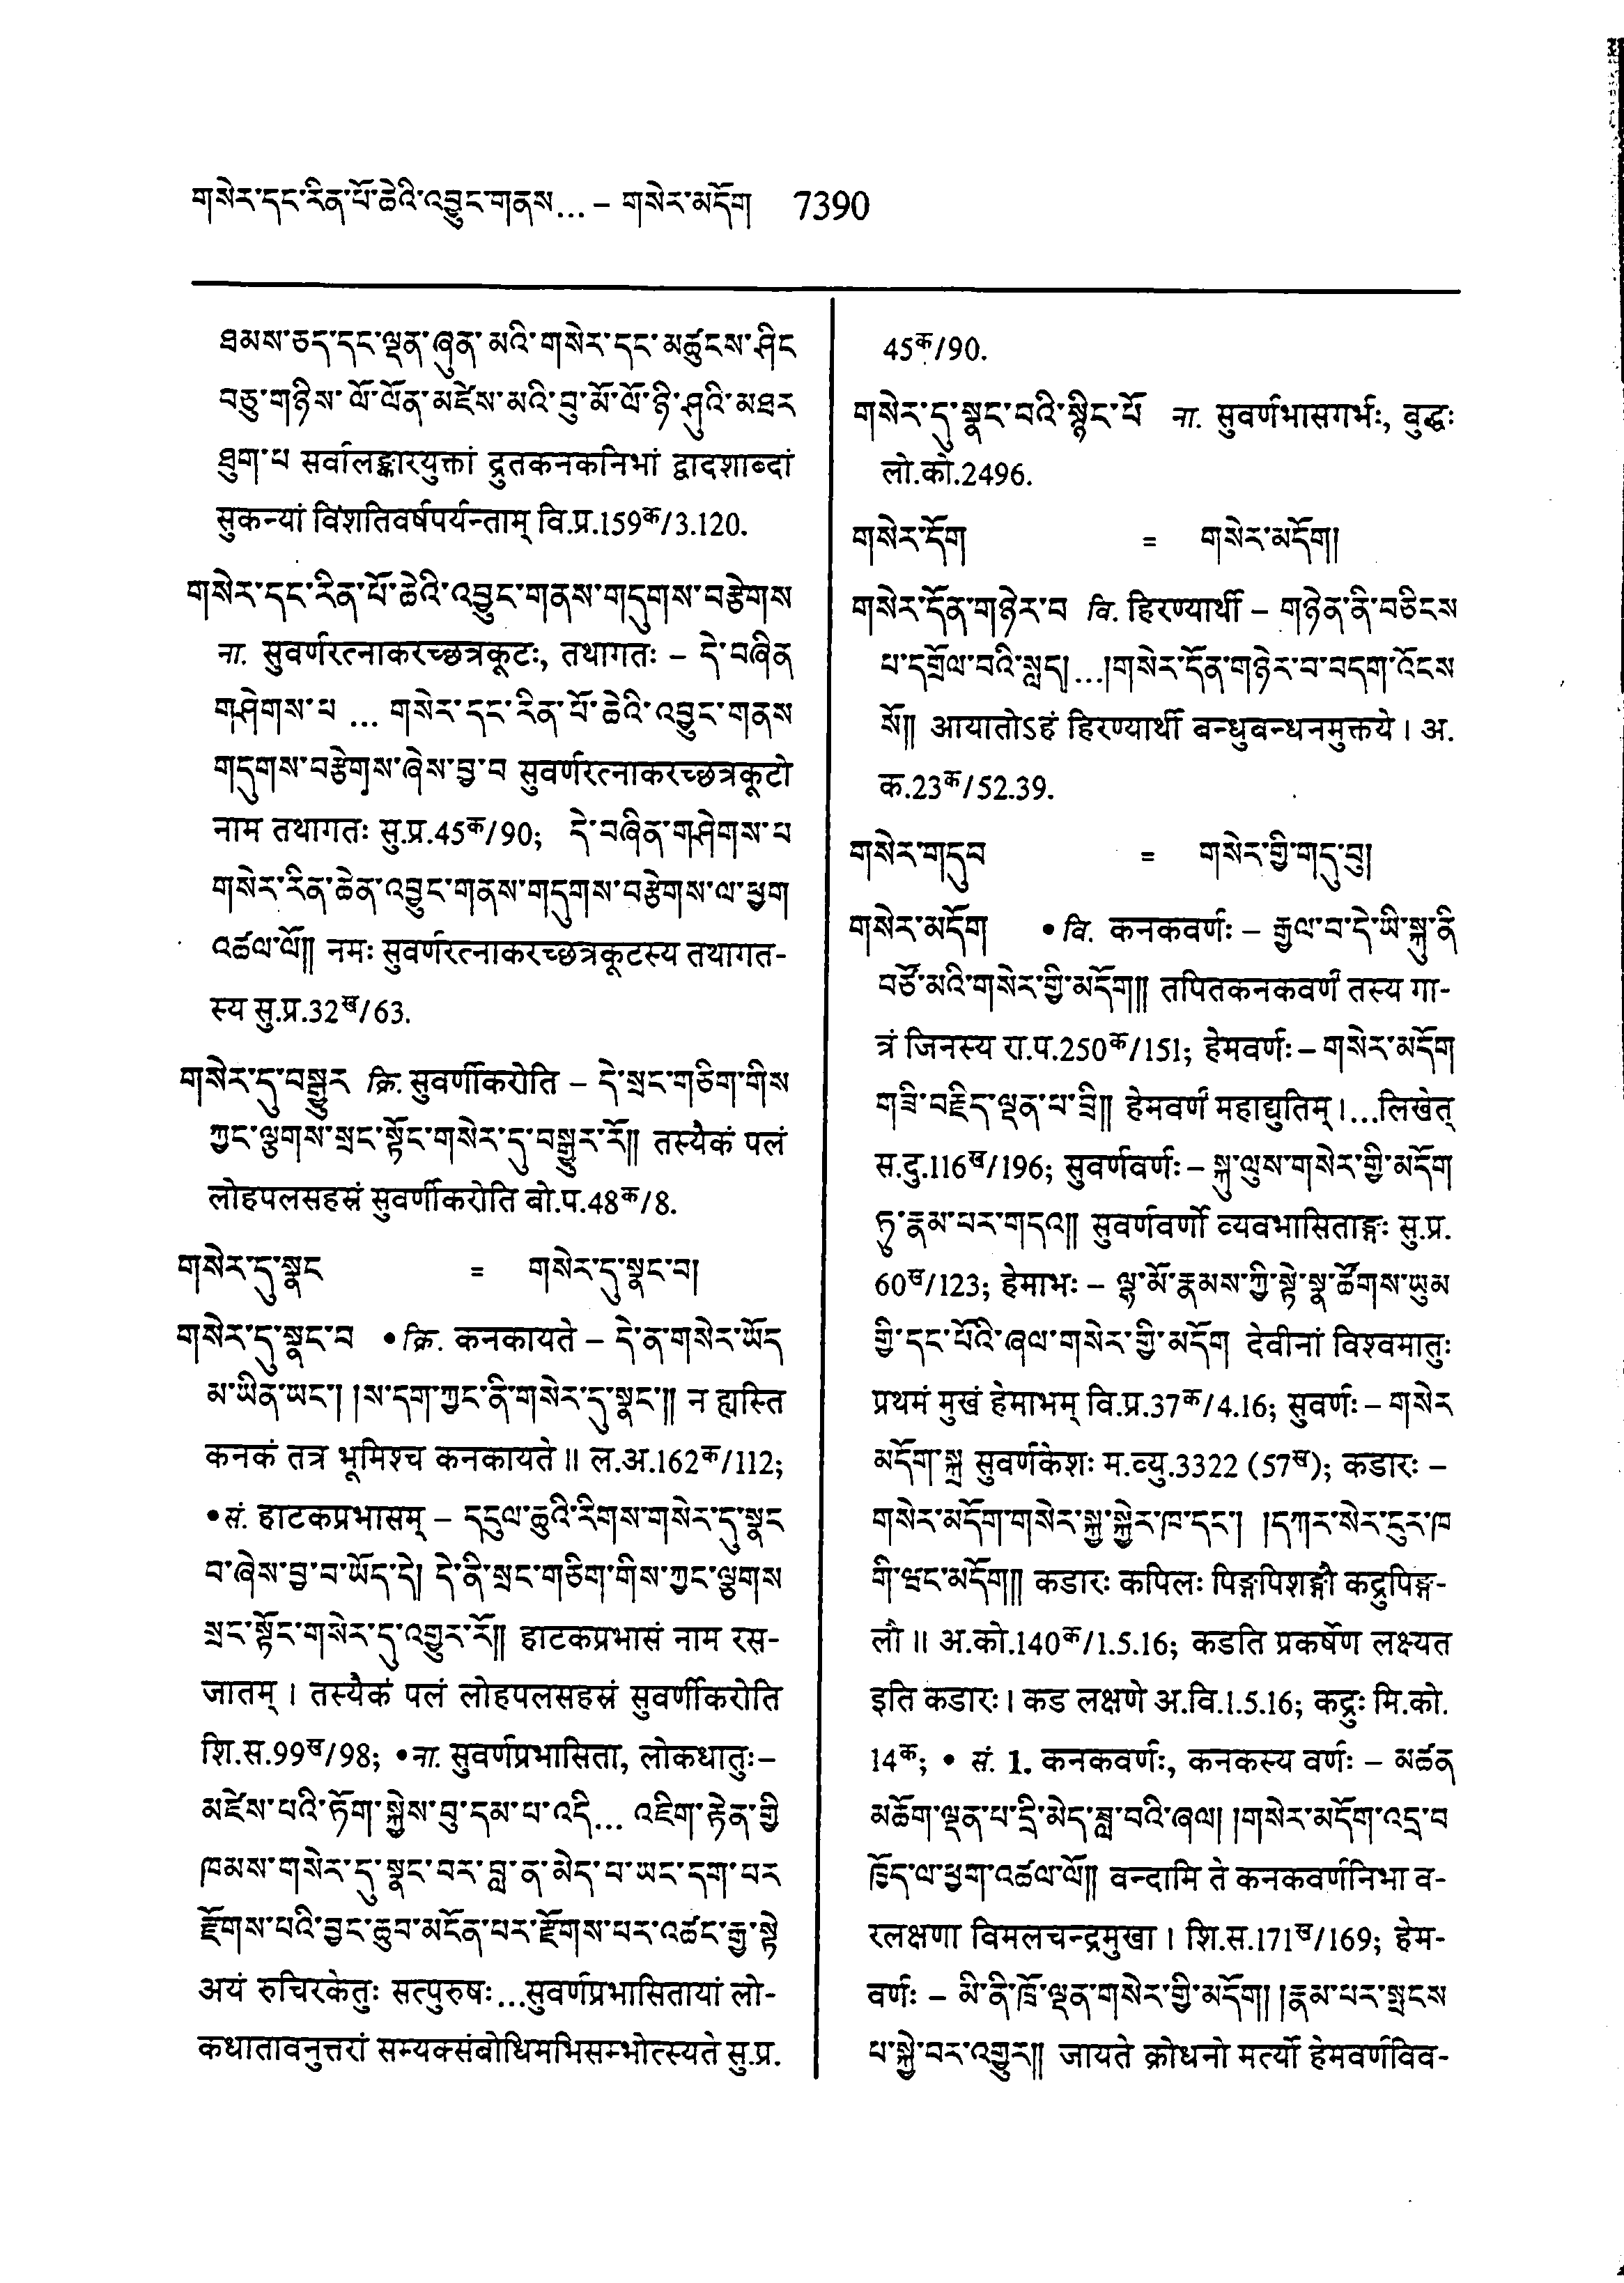 གསེར་དང་རིན་པོ་ཆེའི་འབྱུང་གནས... – གསེར་མདོག 7390
ཐམས་ཅད་དང་ལྡན་ཞུན་མའི་གསེར་དང་མཚུངས་ཤིང
བཅུ་གཉིས་ལོ་ལོན་མཛེས་མའི་བུ་མོ་ལོ་ཉི་ཤུའི་མཐར
ཐུག་པ सर्वालङ्कारयुक्तां द्रुतकनकनिभां द्वादशाब्दां
सुकन्यां विंशतिवर्षपर्यन्ताम् वि.प्र.159क/3.120.
གསེར་དང་རིན་པོ་ཆེའི་འབྱུང་གནས་གདུགས་བརྩེགས
ना. सुवर्णरत्नाकरच्छत्रकूटः, तथागतः – དེ་བཞིན
གཤེགས་པ ... གསེར་དང་རིན་པོ་ཆེའི་འབྱུང་གནས
གདུགས་བརྩེགས་ཞེས་བྱ་བ सुवर्णरत्नाकरच्छत्रकूटो
नाम तथागतः सु.प्र.45क/90; དེ་བཞིན་གཤེགས་པ
གསེར་རིན་ཆེན་འབྱུང་གནས་གདུགས་བརྩེགས་ལ་ཕྱག
འཚལ་ལོ།། नमः सुवर्णरत्नाकरच्छत्रकूटस्य तथागत-
स्य सु.प्र.32ख/63.
གསེར་དུ་བསྒྱུར क्रि. सुवर्णीकरोति – དེ་སྲང་གཅིག་གིས
ཀྱང་ལྕགས་སྲང་སྟོང་གསེར་དུ་བསྒྱུར་རོ།། तस्यैकं पलं
लोहपलसहस्रं सुवर्णीकरोति बो.प.48क/8.
གསེར་དུ་སྣང = གསེར་དུ་སྣང་བ།
གསེར་དུ་སྣང་བ • क्रि. कनकायते – དེ་ན་གསེར་ཡོད
མ་ཡིན་ཡང་། །ས་དག་ཀྱང་ནི་གསེར་དུ་སྣང་།། न ह्यस्ति
कनकं तत्र भूमिश्च कनकायते ॥ ल.अ.162क/112;
• सं. हाटकप्रभासम् – དངུལ་ཆུའི་རིགས་གསེར་དུ་སྣང
བ་ཞེས་བྱ་བ་ཡོད་དེ། དེ་ནི་སྲང་གཅིག་གིས་ཀྱང་ལྕགས
སྲང་སྟོང་གསེར་དུ་འགྱུར་རོ།། हाटकप्रभासं नाम रस-
जातम् । तस्यैकं पलं लोहपलसहस्रं सुवर्णीकरोति
शि.स.99ख/98; • ना. सुवर्णप्रभासिता, लोकधातुः–
མཛེས་པའི་ཏོག་སྐྱེས་བུ་དམ་པ་འདི... འཇིག་རྟེན་གྱི
ཁམས་གསེར་དུ་སྣང་བར་བླ་ན་མེད་པ་ཡང་དག་པར
རྫོགས་པའི་བྱང་ཆུབ་མངོན་པར་རྫོགས་པར་འཚང་རྒྱ་སྟེ
अयं रुचिरकेतुः सत्पुरुषः...सुवर्णप्रभासितायां लो-
कधातावनुत्तरां सम्यक्संबोधिमभिसम्भोत्स्यते सु.प्र.
45क/90.
གསེར་དུ་སྣང་བའི་སྙིང་པོ ना. सुवर्णभासगर्भः, बुद्धः
लो.को.2496.
གསེར་དོག = གསེར་མདོག།
གསེར་དོན་གཉེར་བ वि. हिरण्यार्थी – གཉེན་ནི་བཅིངས
པ་དགྲོལ་བའི་སླད།...།གསེར་དོན་གཉེར་བ་བདག་འོངས
སོ།། आयातोऽहं हिरण्यार्थी बन्धुबन्धनमुक्तये । अ.
क.23क/52.39.
གསེར་གདུབ = གསེར་གྱི་གདུ་བུ།
གསེར་མདོག • वि. कनकवर्णः – རྒྱལ་བ་དེ་ཡི་སྐུ་ནི
བཙོ་མའི་གསེར་གྱི་མདོག།། तपितकनकवर्णं तस्य गा-
त्रं जिनस्य रा.प.250क/151; हेमवर्णः – གསེར་མདོག
གཟི་བརྗིད་ལྡན་པ་བྲི།། हेमवर्णं महाद्युतिम् ।...लिखेत्
स.दु.116ख/196; सुवर्णवर्णः – སྐུ་ལུས་གསེར་གྱི་མདོག
ཏུ་རྣམ་པར་གདའ།། सुवर्णवर्णो व्यवभासिताङ्गः सु.प्र.
60ख/123; हेमाभः – ལྷ་མོ་རྣམས་ཀྱི་སྟེ་སྣ་ཚོགས་ཡུམ
གྱི་དང་པོའི་ཞལ་གསེར་གྱི་མདོག देवीनां विश्वमातुः
प्रथमं मुखं हेमाभम् वि.प्र.37क/4.16; सुवर्णः – གསེར
མདོག་སྐྲ सुवर्णकेशः म.व्यु.3322 (57ख); कडारः –
གསེར་མདོག་གསེར་སྐྱ་སྐྱེར་ཁ་དང་། །དཀར་སེར་ངུར་ཁ
གི་ཝང་མདོག།། कडारः कपिलः पिङ्गपिशङ्गौ कद्रुपिङ्ग-
लौ ॥ अ.को.140क/1.5.16; कडति प्रकर्षेण लक्ष्यत
इति कडारः । कड लक्षणे अ.वि.1.5.16; कद्रुः मि.को.
14क; • सं. 1. कनकवर्णः, कनकस्य वर्णः – མཚན
མཆོག་ལྡན་པ་དྲི་མེད་ཟླ་བའི་ཞལ། །གསེར་མདོག་འདྲ་བ
ཁྱོད་ལ་ཕྱག་འཚལ་ལོ།། वन्दामि ते कनकवर्णनिभा व-
रलक्षणा विमलचन्द्रमुखा । शि.स.171ख/169; हेम-
वर्णः – མི་ནི་ཁྲོ་ལྡན་གསེར་གྱི་མདོག། །རྣམ་པར་སྤངས
པ་སྐྱེ་བར་འགྱུར།། जायते क्रोधनो मर्त्यो हेमवर्णविव-